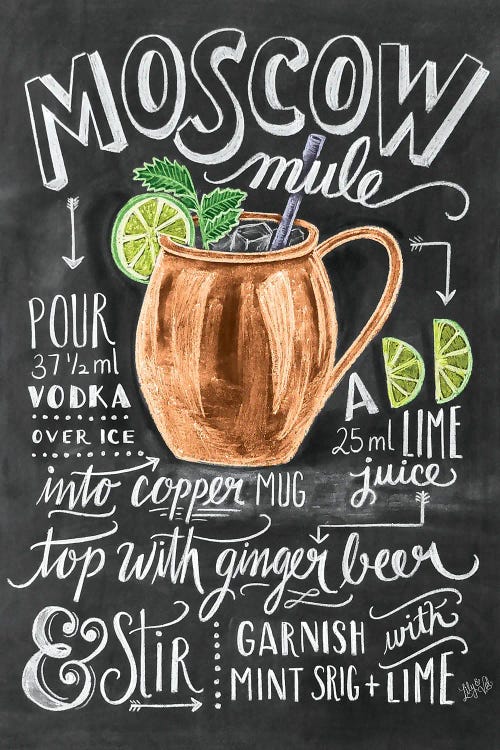 MOSCOW
mule
POUR
37 ½ ml
VODKA
OVER ICE
into copper MUG
ADD
25 ml LIME
juice
top with ginger beer
& Stir
GARNISH with
MINT SRIG + LIME
Lily & Val